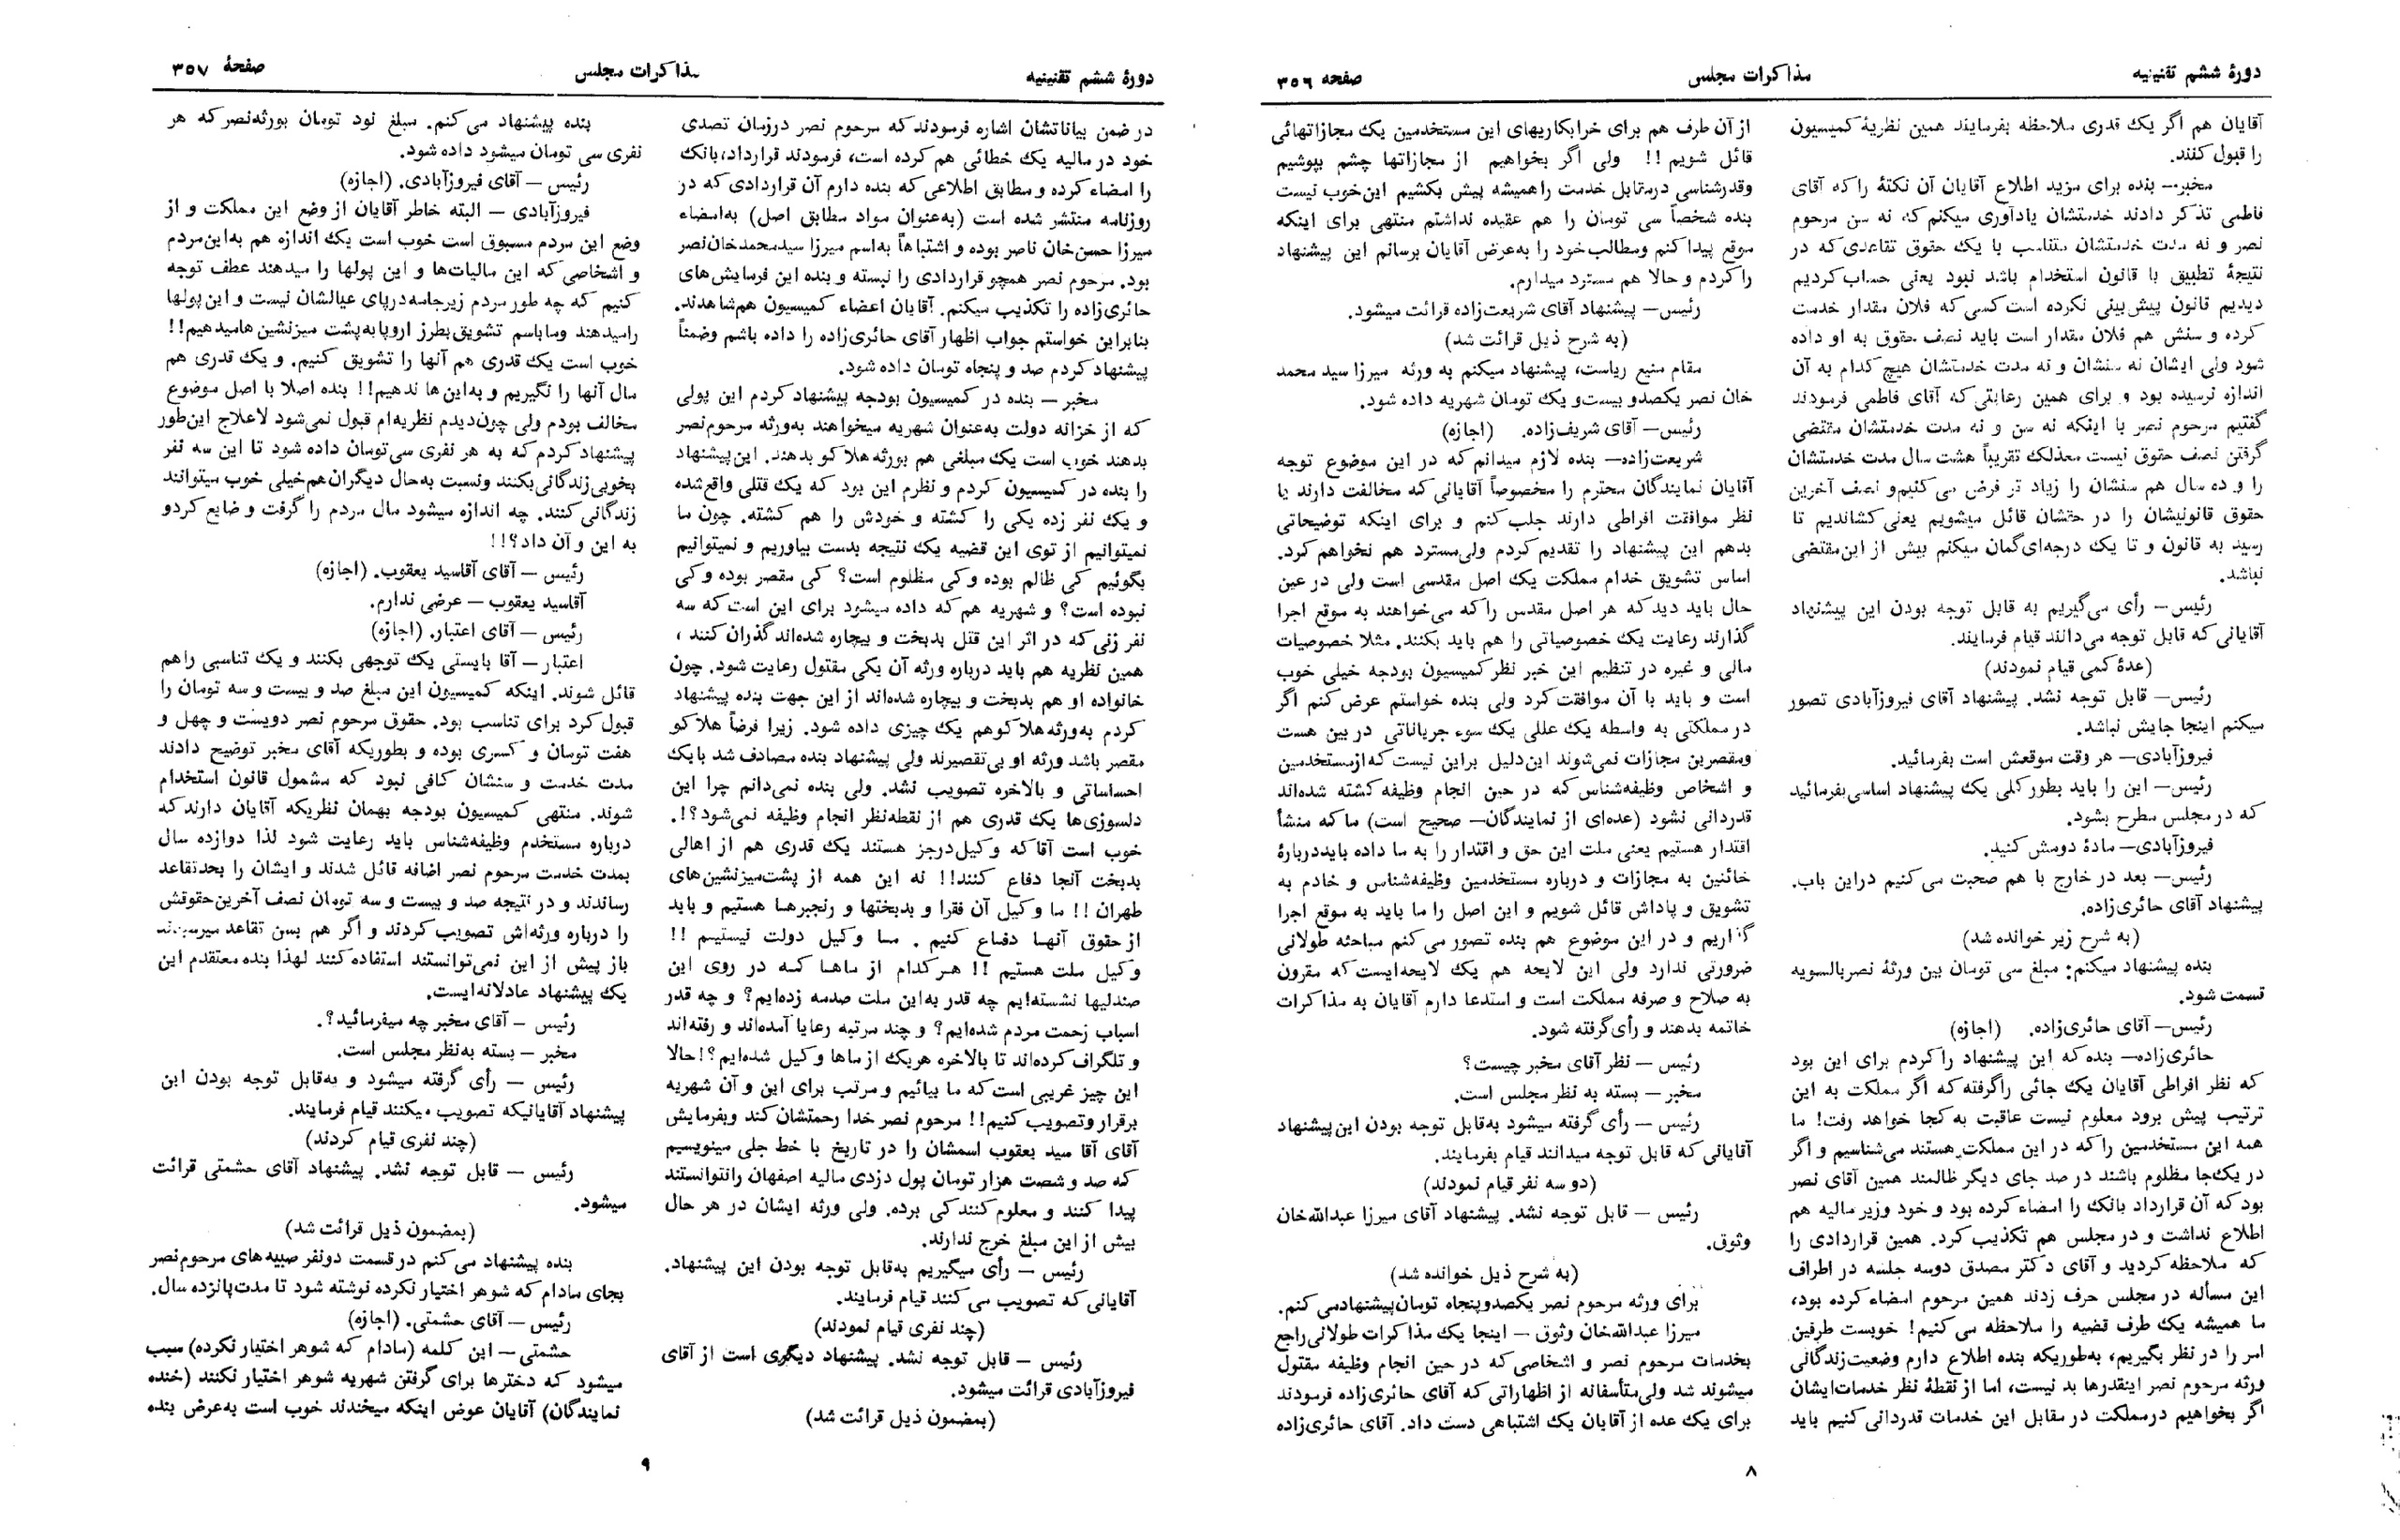 دورهٔ ششم تقنینیه
مذاکرات مجلس
صفحه ۳۵۶
آقایان هم اگر یک قدری ملاحظه بفرمایند همین نظریهٔ کمیسیون
را قبول کنند.
مخبر— بنده برای مزید اطلاع آقایان آن نکتهٔ را که آقای
فاطمی تذکر دادند خدمتشان یادآوری میکنم که نه سن مرحوم
نصر و نه مدت خدمتشان متناسب با یک حقوق تقاعدی که در
نتیجهٔ تطبیق با قانون استخدام باشد نبود یعنی حساب کردیم
دیدیم قانون پیش‌بینی نکرده است کسی که فلان مقدار خدمت
کرده و سنش هم فلان مقدار است باید نصف حقوق به او داده
شود ولی ایشان نه سنشان و نه مدت خدمتشان هیچ کدام به آن
اندازه نرسیده بود و برای همین رعایتی که آقای فاطمی فرمودند
گفتیم مرحوم نصر با اینکه نه سن و نه مدت خدمتشان مقتضی
گرفتن نصف حقوق نیست معذلک تقریباً هشت سال مدت خدمتشان
را و ده سال هم سنشان را زیاد تر فرض می کنیم و نصف آخرین
حقوق قانونیشان را در حقشان قائل میشویم یعنی کشاندیم تا
رسید به قانون و تا یک درجه‌ای گمان میکنم بیش از این مقتضی
نباشد.
رئیس— رأی می‌گیریم به قابل توجه بودن این پیشنهاد
آقایانی که قابل توجه می‌دانند قیام فرمایند.
(عدهٔ کمی قیام نمودند)
رئیس— قابل توجه نشد. پیشنهاد آقای فیروزآبادی تصور
میکنم اینجا جایش نباشد.
فیروزآبادی— هر وقت موقعش است بفرمائید.
رئیس— این را باید بطور کلی یک پیشنهاد اساسی بفرمائید
که در مجلس مطرح بشود.
فیروزآبادی— مادهٔ دومش کنید.
رئیس— بعد در خارج با هم صحبت می کنیم دراین باب.
پیشنهاد آقای حائری‌زاده.
(به شرح زیر خوانده شد)
بنده پیشنهاد میکنم: مبلغ سی تومان بین ورثهٔ نصر بالسویه
قسمت شود.
رئیس— آقای حائری‌زاده. (اجازه)
حائری‌زاده— بنده که این پیشنهاد را کردم برای این بود
که نظر افراطی آقایان یک جائی را گرفته که اگر مملکت به این
ترتیب پیش برود معلوم نیست عاقبت به کجا خواهد رفت! ما
همه این مستخدمین را که در این مملکت هستند می‌شناسیم و اگر
در یک‌جا مظلوم باشند در صد جای دیگر ظالمند همین آقای نصر
بود که آن قرارداد بانک را امضاء کرده بود و خود وزیر مالیه هم
اطلاع نداشت و در مجلس هم تکذیب کرد. همین قراردادی را
که ملاحظه کردید و آقای دکتر مصدق دوسه جلسه در اطراف
این مسأله در مجلس حرف زدند همین مرحوم امضاء کرده بود،
ما همیشه یک طرف قضیه را ملاحظه می کنیم! خوبست طرفین
امر را در نظر بگیریم، به‌طوریکه بنده اطلاع دارم وضعیت زندگانی
ورثه مرحوم نصر اینقدرها بد نیست، اما از نقطهٔ نظر خدمات ایشان
اگر بخواهیم در مملکت در مقابل این خدمات قدردانی کنیم باید
از آن طرف هم برای خرابکاریهای این مستخدمین یک مجازاتهائی
قائل شویم!! ولی اگر بخواهیم از مجازاتها چشم بپوشیم
وقدرشناسی درمقابل خدمت را همیشه پیش بکشیم این خوب نیست
بنده شخصاً سی تومان را هم عقیده نداشتم منتهی برای اینکه
موقع پیدا کنم ومطالب خود را به‌عرض آقایان برسانم این پیشنهاد
را کردم و حالا هم مسترد میدارم.
رئیس— پیشنهاد آقای شریعت‌زاده قرائت میشود.
(به شرح ذیل قرائت شد)
مقام منیع ریاست، پیشنهاد میکنم به ورثه میرزا سید محمد
خان نصر یکصدو بیست‌و یک تومان شهریه داده شود.
رئیس— آقای شریف‌زاده. (اجازه)
شریعت‌زاده— بنده لازم میدانم که در این موضوع توجه
آقایان نمایندگان محترم را مخصوصاً آقایانی که مخالفت دارند یا
نظر موافقت افراطی دارند جلب کنم و برای اینکه توضیحاتی
بدهم این پیشنهاد را تقدیم کردم ولی مسترد هم نخواهم کرد.
اساس تشویق خدام مملکت یک اصل مقدسی است ولی در عین
حال باید دید که هر اصل مقدس را که می‌خواهند به موقع اجرا
گذارند رعایت یک خصوصیاتی را هم باید بکنند. مثلا خصوصیات
مالی و غیره در تنظیم این خبر نظر کمیسیون بودجه خیلی خوب
است و باید با آن موافقت کرد ولی بنده خواستم عرض کنم اگر
در مملکتی به واسطه یک عللی یک سوء جریاناتی در بین هست
ومقصرین مجازات نمی‌شوند این‌دلیل براین نیست که ازمستخدمین
و اشخاص وظیفه‌شناس که در حین انجام وظیفه کشته شده‌اند
قدردانی نشود (عده‌ای از نمایندگان— صحیح است) ما که منشأ
اقتدار هستیم یعنی ملت این حق و اقتدار را به ما داده باید دربارهٔ
خائنین به مجازات و درباره مستخدمین وظیفه‌شناس و خادم به
تشویق و پاداش قائل شویم و این اصل را ما باید به موقع اجرا
گذاریم و در این موضوع هم بنده تصور می کنم مباحثه طولانی
ضرورتی ندارد ولی این لایحه هم یک لایحه‌ایست که مقرون
به صلاح و صرفه مملکت است و استدعا دارم آقایان به مذاکرات
خاتمه بدهند و رأی‌گرفته شود.
رئیس — نظر آقای مخبر چیست؟
مخبر — بسته به نظر مجلس است.
رئیس — رأی گرفته میشود به‌قابل توجه بودن این پیشنهاد
آقایانی که قابل توجه میدانند قیام بفرمایند.
(دو سه نفر قیام نمودند)
رئیس — قابل توجه نشد. پیشنهاد آقای میرزا عبدالله‌خان
وثوق.
(به شرح ذیل خوانده شد)
برای ورثه مرحوم نصر یکصدوپنجاه تومان پیشنهادمی کنم.
میرزا عبدالله‌خان وثوق — اینجا یک مذاکرات طولانی راجع
بخدمات مرحوم نصر و اشخاصی که در حین انجام وظیفه مقتول
میشوند شد ولی‌متأسفانه از اظهاراتی که آقای حائری‌زاده فرمودند
برای یک عده از آقایان یک اشتباهی دست داد. آقای حائری‌زاده
۸
دورهٔ ششم تقنینیه
مذاکرات مجلس
صفحهٔ ۳۵۷
در ضمن بیاناتشان اشاره فرمودند که مرحوم نصر درزمان تصدی
خود در مالیه یک خطائی هم کرده است، فرمودند قرارداد، بانک
را امضاء کرده و مطابق اطلاعی که بنده دارم آن قراردادی که در
روزنامه منتشر شده است (به‌عنوان مواد مطابق اصل) به‌امضاء
میرزا حسن‌خان ناصر بوده و اشتباهاً به‌اسم میرزا سیدمحمدخان نصر
بود. مرحوم نصر همچو قراردادی را نبسته و بنده این فرمایش‌های
حائری‌زاده را تکذیب میکنم. آقایان اعضاء کمیسیون هم‌شاهدند.
بنابراین خواستم جواب اظهار آقای حائری‌زاده را داده باشم وضمناً
پیشنهاد کردم صد و پنجاه تومان داده شود.
مخبر — بنده در کمیسیون بودجه پیشنهاد کردم این پولی
که از خزانه دولت به‌عنوان شهریه میخواهند به‌ورثه مرحوم نصر
بدهند خوب است یک مبلغی هم بورثه هلاکو بدهند. این پیشنهاد
را بنده در کمیسیون کردم و نظرم این بود که یک قتلی واقع شده
و یک نفر زده یکی را کشته و خودش را هم کشته. چون ما
نمیتوانیم از توی این قضیه یک نتیجه بدست بیاوریم و نمیتوانیم
بگوئیم کی ظالم بوده و کی مظلوم است؟ کی مقصر بوده و کی
نبوده است؟ و شهریه هم که داده میشود برای این است که سه
نفر زنی که در اثر این قتل بدبخت و بیچاره شده‌اند گذران کنند،
همین نظریه هم باید درباره ورثه آن یکی مقتول رعایت شود. چون
خانواده او هم بدبخت و بیچاره شده‌اند از این جهت بنده پیشنهاد
کردم به‌ورثه‌هلاکوهم یک چیزی داده شود. زیرا فرضاً هلاکو
مقصر باشد ورثه او بی‌تقصیرند ولی پیشنهاد بنده مصادف شد بایک
احساساتی و بالاخره تصویب نشد. ولی بنده نمی‌دانم چرا این
دلسوزی‌ها یک قدری هم از نقطه‌نظر انجام وظیفه نمی‌شود؟!.
خوب است آقا که وکیل درجز هستند یک قدری هم از اهالی
بدبخت آنجا دفاع کنند!! نه این همه از پشت‌میزنشین‌های
طهران!! ما وکیل آن فقرا و بدبختها و رنجبرها هستیم و باید
از حقوق آنها دفاع کنیم. ما وکیل دولت نیستیم!!
وکیل ملت هستیم!! هرکدام از ماها که در روی این
صندلیها نشسته‌ایم چه قدر به‌این ملت صدمه زده‌ایم؟ و چه قدر
اسباب زحمت مردم شده‌ایم؟ و چند مرتبه رعایا آمده‌اند و رفته‌اند
و تلگراف کرده‌اند تا بالاخره هریک از ماها وکیل شده‌ایم؟!حالا
این چیز غریبی است که ما بیائیم و مرتب برای این و آن شهریه
برقرار وتصویب کنیم!! مرحوم نصر خدا رحمتشان کند وبفرمایش
آقای آقا سید یعقوب اسمشان را در تاریخ با خط جلی مینویسیم
که صد و شصت هزار تومان پول دزدی مالیه اصفهان رانتوانستند
پیدا کنند و معلوم کنند کی برده. ولی ورثه ایشان در هر حال
بیش از این مبلغ خرج ندارند.
رئیس — رأی میگیریم به‌قابل توجه بودن این پیشنهاد.
آقایانی که تصویب می کنند قیام فرمایند.
(چند نفری قیام نمودند)
رئیس — قابل توجه نشد. پیشنهاد دیگری است از آقای
فیروزآبادی قرائت میشود.
(بمضمون ذیل قرائت شد)
بنده پیشنهاد می کنم. مبلغ نود تومان بورثه‌نصر که هر
نفری سی تومان میشود داده شود.
رئیس — آقای فیروزآبادی. (اجازه)
فیروزآبادی — البته خاطر آقایان از وضع این مملکت و از
وضع این مردم مسبوق است خوب است یک اندازه هم به‌این‌مردم
و اشخاصی که این مالیات‌ها و این پولها را میدهند عطف توجه
کنیم که چه طور مردم زیرجامه درپای عیالشان نیست و این پولها
رامیدهند وماباسم تشویق بطرز اروپا به‌پشت میزنشین هامیدهیم!!
خوب است یک قدری هم آنها را تشویق کنیم. و یک قدری هم
مال آنها را نگیریم و به‌این ها ندهیم!! بنده اصلا با اصل موضوع
مخالف بودم ولی چون‌دیدم نظریه‌ام قبول نمی‌شود لاعلاج این‌طور
پیشنهاد کردم که به هر نفری سی‌تومان داده شود تا این سه نفر
بخوبی زندگانی بکنند ونسبت به‌حال دیگران هم‌خیلی خوب میتوانند
زندگانی کنند. چه اندازه میشود مال مردم را گرفت و ضایع کردو
به این و آن داد؟!!
رئیس — آقای آقاسید یعقوب. (اجازه)
آقاسید یعقوب — عرضی ندارم.
رئیس — آقای اعتبار. (اجازه)
اعتبار — آقا بایستی یک توجهی بکنند و یک تناسبی راهم
قائل شوند. اینکه کمیسیون این مبلغ صد و بیست و سه تومان را
قبول کرد برای تناسب بود. حقوق مرحوم نصر دویست و چهل و
هفت تومان و کسری بوده و بطوریکه آقای مخبر توضیح دادند
مدت خدمت و سنشان کافی نبود که مشمول قانون استخدام
شوند. منتهی کمیسیون بودجه بهمان نظریکه آقایان دارند که
درباره مستخدم وظیفه‌شناس باید رعایت شود لذا دوازده سال
بمدت خدمت مرحوم نصر اضافه قائل شدند و ایشان را بحدتقاعد
رساندند و در نتیجه صد و بیست و سه تومان نصف آخرین‌حقوقش
را درباره ورثه‌اش تصویب کردند و اگر هم بسن تقاعد میرسیدند
باز پیش از این نمی‌توانستند استفاده کنند لهذا بنده معتقدم این
یک پیشنهاد عادلانه‌ایست.
رئیس — آقای مخبر چه میفرمائید؟.
مخبر — بسته به‌نظر مجلس است.
رئیس — رأی گرفته میشود و به‌قابل توجه بودن این
پیشنهاد آقایانیکه تصویب میکنند قیام فرمایند.
(چند نفری قیام کردند)
رئیس — قابل توجه نشد. پیشنهاد آقای حشمتی قرائت
میشود.
(بمضمون ذیل قرائت شد)
بنده پیشنهاد می کنم در قسمت دونفر صبیه های مرحوم‌نصر
بجای مادام که شوهر اختیار نکرده نوشته شود تا مدت پانزده سال.
رئیس — آقای حشمتی. (اجازه)
حشمتی — این کلمه (مادام که شوهر اختیار نکرده) سبب
میشود که دخترها برای گرفتن شهریه شوهر اختیار نکنند (خنده
نمایندگان) آقایان عوض اینکه میخندند خوب است به‌عرض بنده
۹